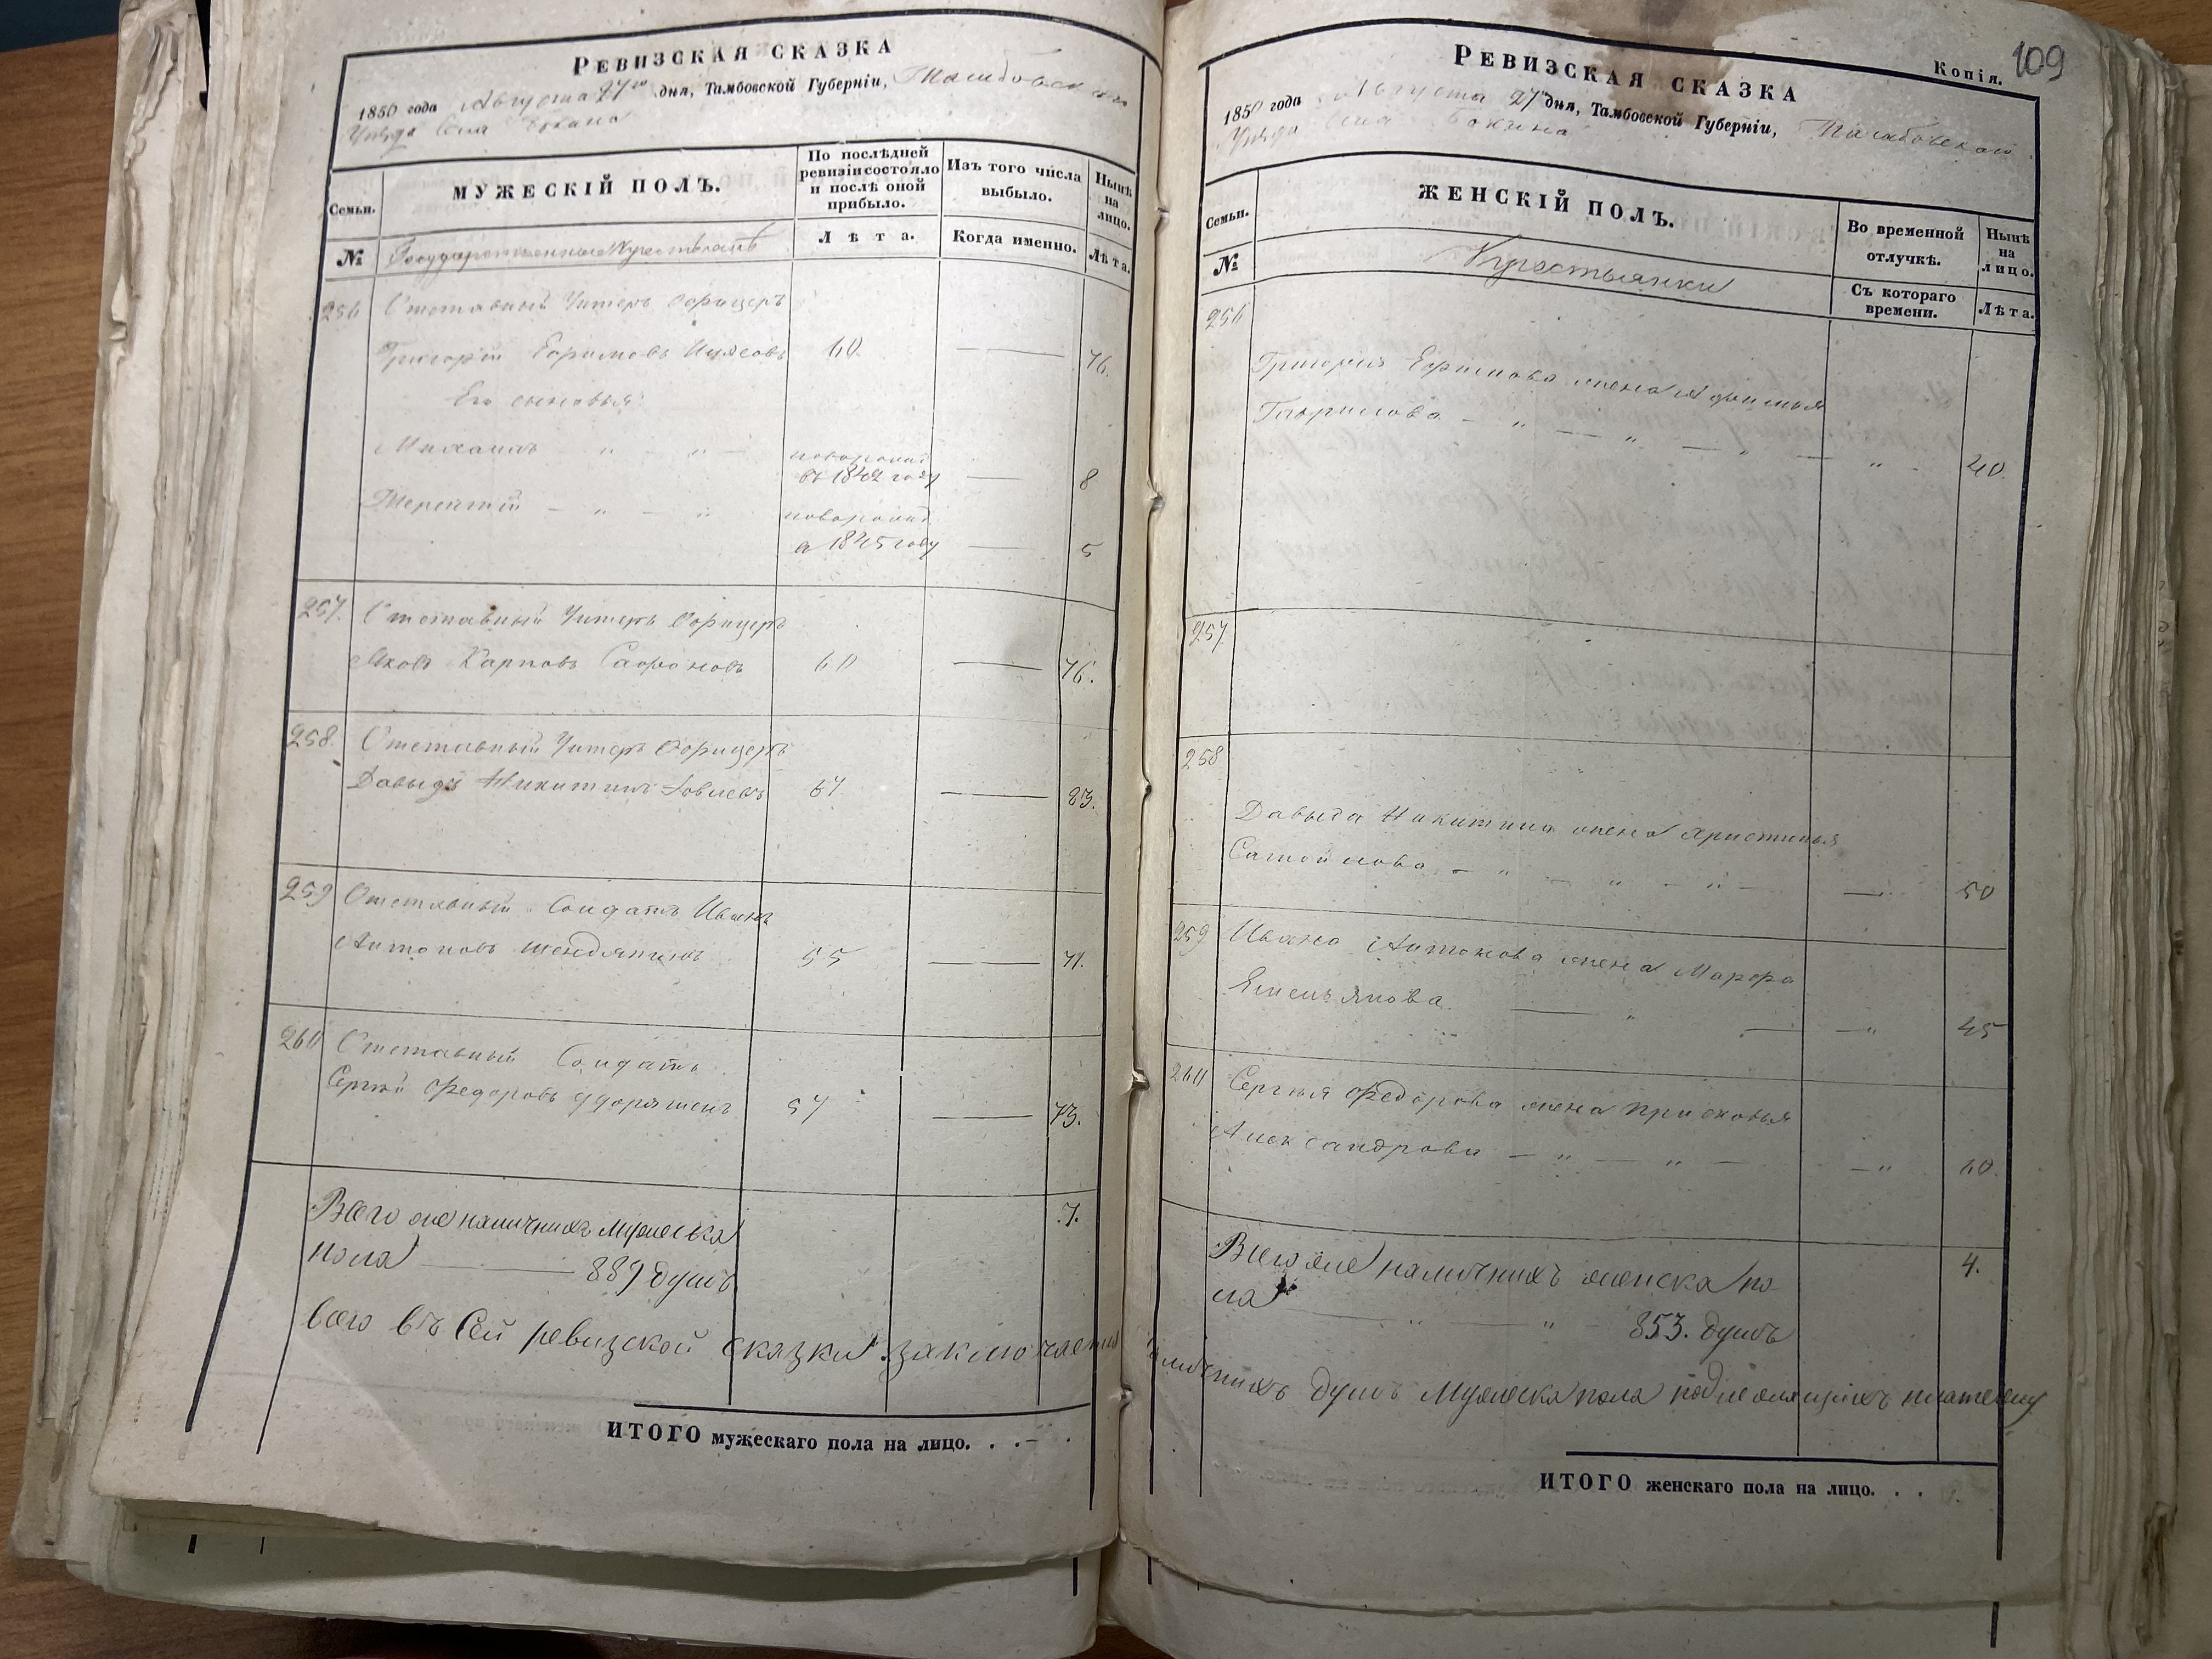 РЕВИЗСКАЯ СКАЗКА
1850 года Августа 27го дня, Тамбовской Губерніи, Тамбовскаго
Уѣзда Села Бокина
Семьи. МУЖЕСКІЙ ПОЛЪ. По послѣдней ревизіи состояло и послѣ оной прибыло. Изъ того числа выбыло. Нынѣ на лицо.
№ Государственные Крестьяне Лѣта. Когда именно. Лѣта.
256 Отставный Унтеръ Офицеръ
Григорій Ефимовъ 60. 76.
Его сыновья
Михаилъ новорожд
въ 1842 году 8
Терентій новорожд
в 1845 году 5
257. Отставный Унтеръ Офицеръ
Яковъ Карповъ Сафоновъ 60 76.
258. Отставный Унтеръ Офицеръ
Давыдъ Никитинъ 67. 83.
259 Отставный Солдатъ Иванъ
Антоновъ 55 71.
260 Отставный Солдатъ
Сергѣй Федоровъ 57 73.
7.
Всего же наличныхъ мужеска
пола 889 душъ
всего въ Сей ревизской сказки заключается
ИТОГО мужескаго пола на лицо. . .
109
Копія.
РЕВИЗСКАЯ СКАЗКА
1850 года Августа 27 дня, Тамбовской Губерніи, Тамбовскаго
Уѣзда Села Бокина
Семьи. ЖЕНСКІЙ ПОЛЪ. Во временной отлучкѣ. Нынѣ на лицо.
№ Крестьянки Съ котораго времени. Лѣта.
256
Григорія Ефимова жена Афимья
Гаврилова 40.
257
258
Давыда Никитина жена Христинья
Самойлова 50
259 Ивана Антонова жена Марфа
Емельянова 45
260 Сергѣя Федорова жена Прасковья
Александрова 60.
4.
Всего же наличныхъ женска по
ла 853. душъ
наличныхъ душъ Мужеска пола подлежащихъ платежу
ИТОГО женскаго пола на лицо. . .